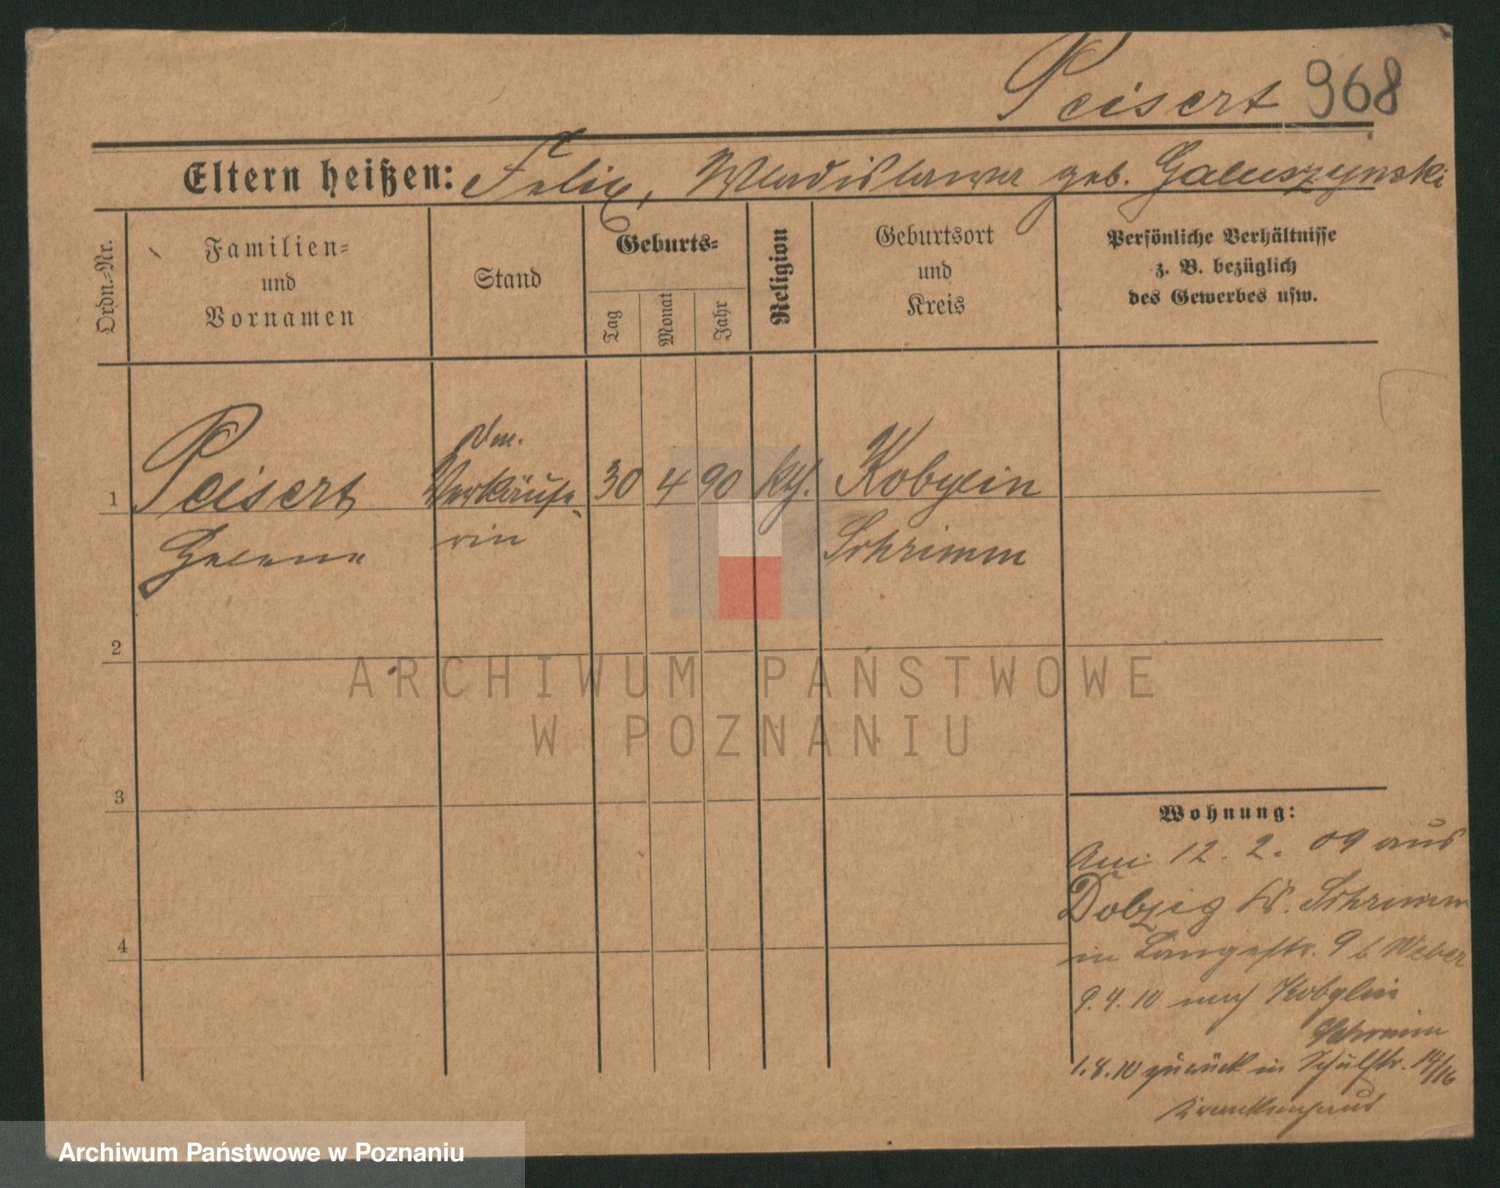 Peisert 968
Eltern heißen: Felix, Wladislawa geb. Galuszynski
Ordn.-Nr.
Familien-
und
Vornamen
Stand
Geburts-
Tag
Monat
Jahr
Religion
Geburtsort
und
Kreis
Persönliche Verhältnisse
z. B. bezüglich
des Gewerbes usw.
1
Peisert
Helene
Verkäufe-
rin
30
4
90
kth.
Kobylin
Schrimm
2
3
4
Wohnung:
Am 12. 2. 09 aus
Dobzeg Kr. Schrimm
in Langestr. 9 b Weber
9.4.10 nach Kobylin
Schrimm
1.8.10 zurück in Schulstr. 14/16
Krankenhaus
ARCHIWUM PAŃSTWOWE
W POZNANIU
Archiwum Państwowe w Poznaniu